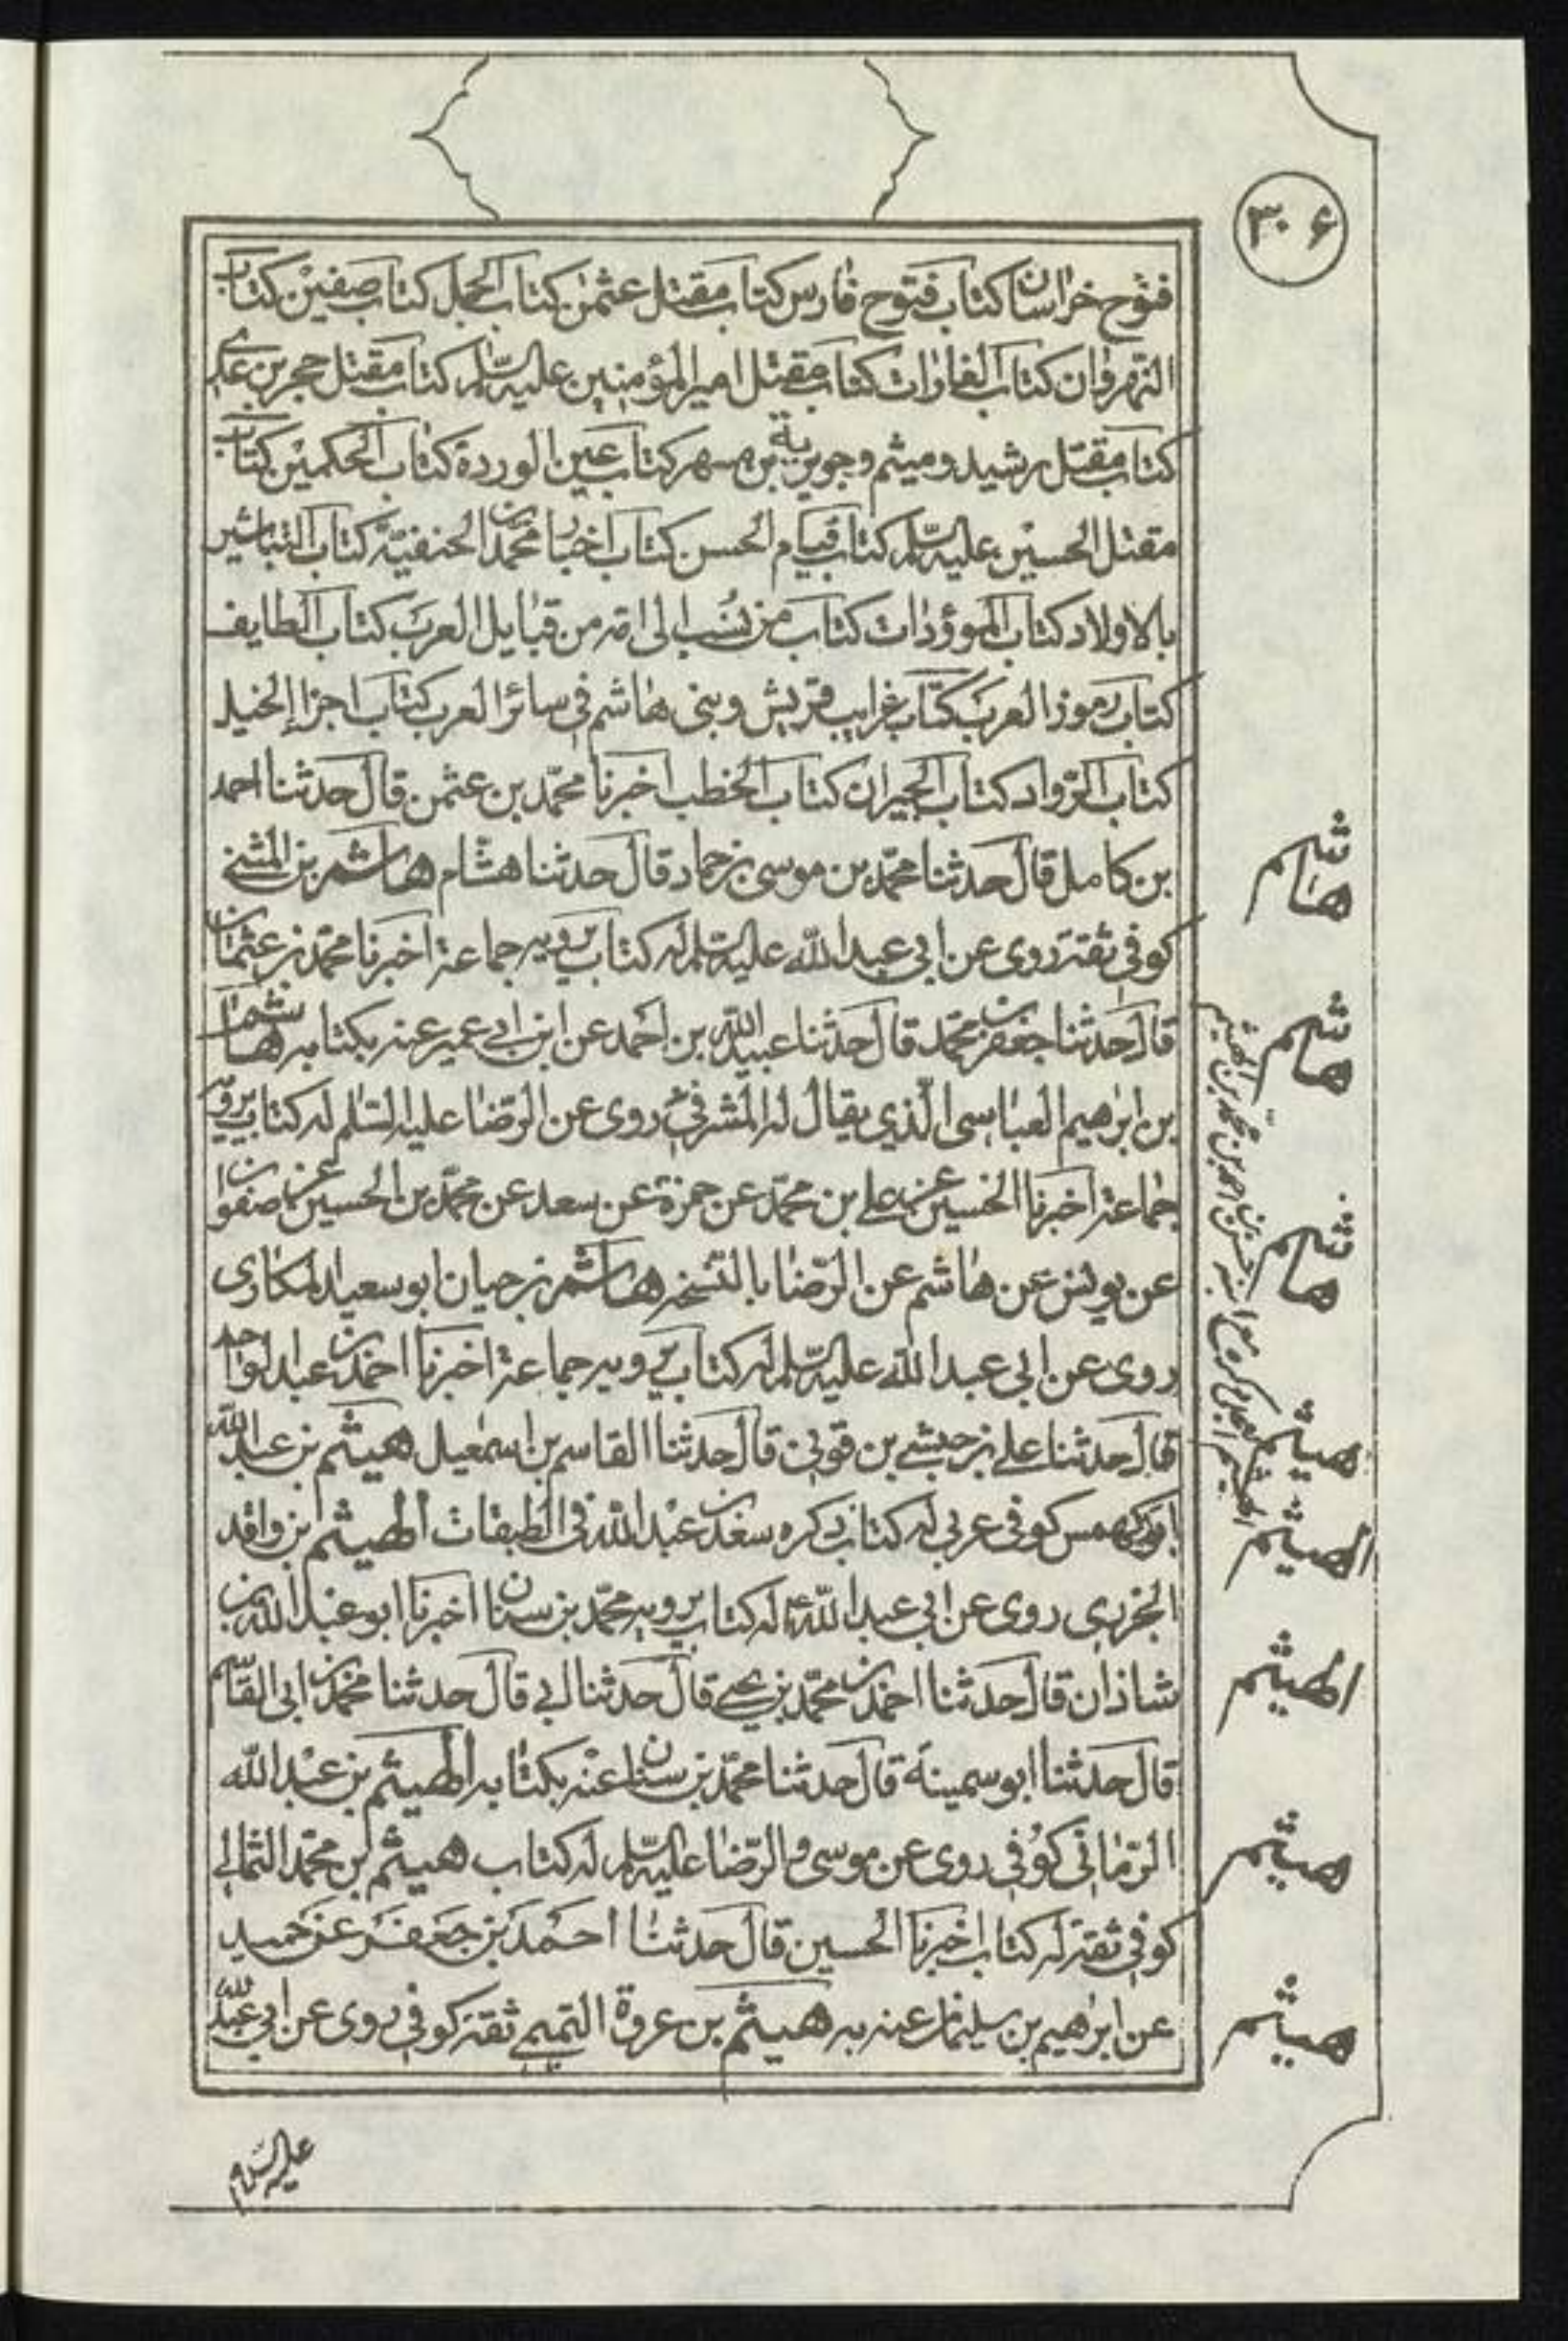 ٣٠۶
فتوح خراسان كتاب فتوح فارس كتاب مقتل عثمن كتاب الجمل كتاب صفين كتاب
النهروان كتاب الغارات كتاب مقتل امير المؤمنين عليه السلم كتاب مقتل حجر بن عدى
كتاب مقتل رشيد وميثم وجويرية بن مسهر كتاب عين الوردة كتاب الحكمين كتاب
مقتل الحسين عليه السلم كتاب قيام الحسن كتاب اخبار محمد بن الحنفية كتاب التباشير
بالاولاد كتاب الموؤدات كتاب من نسب الى امه من قبايل العرب كتاب الطايف
كتاب رموز العرب كتاب غرايب قريش وبنى هاشم فى سائر العرب كتاب اجزاء الخيل
كتاب الرواد كتاب الجيران كتاب الخطب اخبرنا محمد بن عثمن قال حدثنا احمد
بن كامل قال حدثنا محمد بن موسى بن حماد قال حدثنا هشام هاشم بن المثنى
كوفى ثقة روى عن ابى عبد الله عليه السلم له كتاب يرويه جماعة اخبرنا محمد بن عثمان
قال حدثنا جعفر بن محمد قال حدثنا عبيد الله بن احمد عن ابن ابى عمير عنه بكتابه هاشم
بن ابرهيم العباسى الذي يقال له المشرقى روى عن الرضا عليه السلم له كتاب يرويه
جماعة اخبرنا الحسين عن على بن محمد عن حمزة عن سعد عن محمد بن الحسين عن صفوان
عن يونس عن هاشم عن الرضا بالنسخة هاشم بن حيان ابو سعيد المكارى
روى عن ابى عبد الله عليه السلم له كتاب يرويه جماعة اخبرنا احمد بن عبد الواحد
قال حدثنا على بن حبشى بن قونى قال حدثنا القاسم بن اسمعيل هيثم بن عبد الله
ابو كهمس كوفى عربى له كتاب ذكره سعد بن عبد الله فى الطبقات الهيثم ابن واقد
الجزرى روى عن ابى عبد الله ع له كتاب يرويه محمد بن سنان اخبرنا ابو عبد الله بن
شاذان قال حدثنا احمد بن محمد بن يحيى قال حدثنا ابى قال حدثنا محمد بن ابى القاسم
قال حدثنا ابو سمينة قال حدثنا محمد بن سنان عنه بكتابه الهيثم بن عبد الله
الرمانى كوفى روى عن موسى والرضا عليه السلم له كتاب هيثم بن محمد الثمالى
كوفى ثقة له كتاب اخبرنا الحسين قال حدثنا احمد بن جعفر عن حميد
عن ابرهيم بن سليمان عنه به هيثم بن عروة التميمى ثقة كوفى روى عن ابى عبد الله
هاشم
هاشم
هاشم
هيثم
الهيثم
الهيثم
هيثم
هيثم
عليه السلام